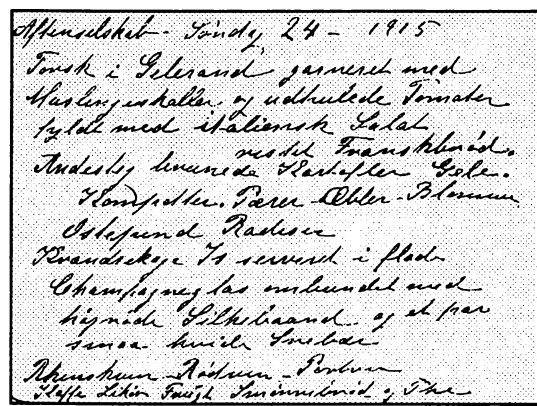 Aftenselskab - Søndag 24 - 1915
Torsk i Gelerand, garneret med
Muslingeskaller og udhulede Tomater
fyldt med italiensk Salat
ristet Franskbrød.
Andesteg brunede Kartofler Gele.
Kompotter. Pærer - Æbler - Blommer
Ostepind Radiser
Is serveret i flade
Champagneglas ombundet med
højrøde Silkebaand og et par
smaa hvide Snebær
Rhinskvin - Rødvin - Portvin
Kaffe Likør Frugt Smørrebrød og The